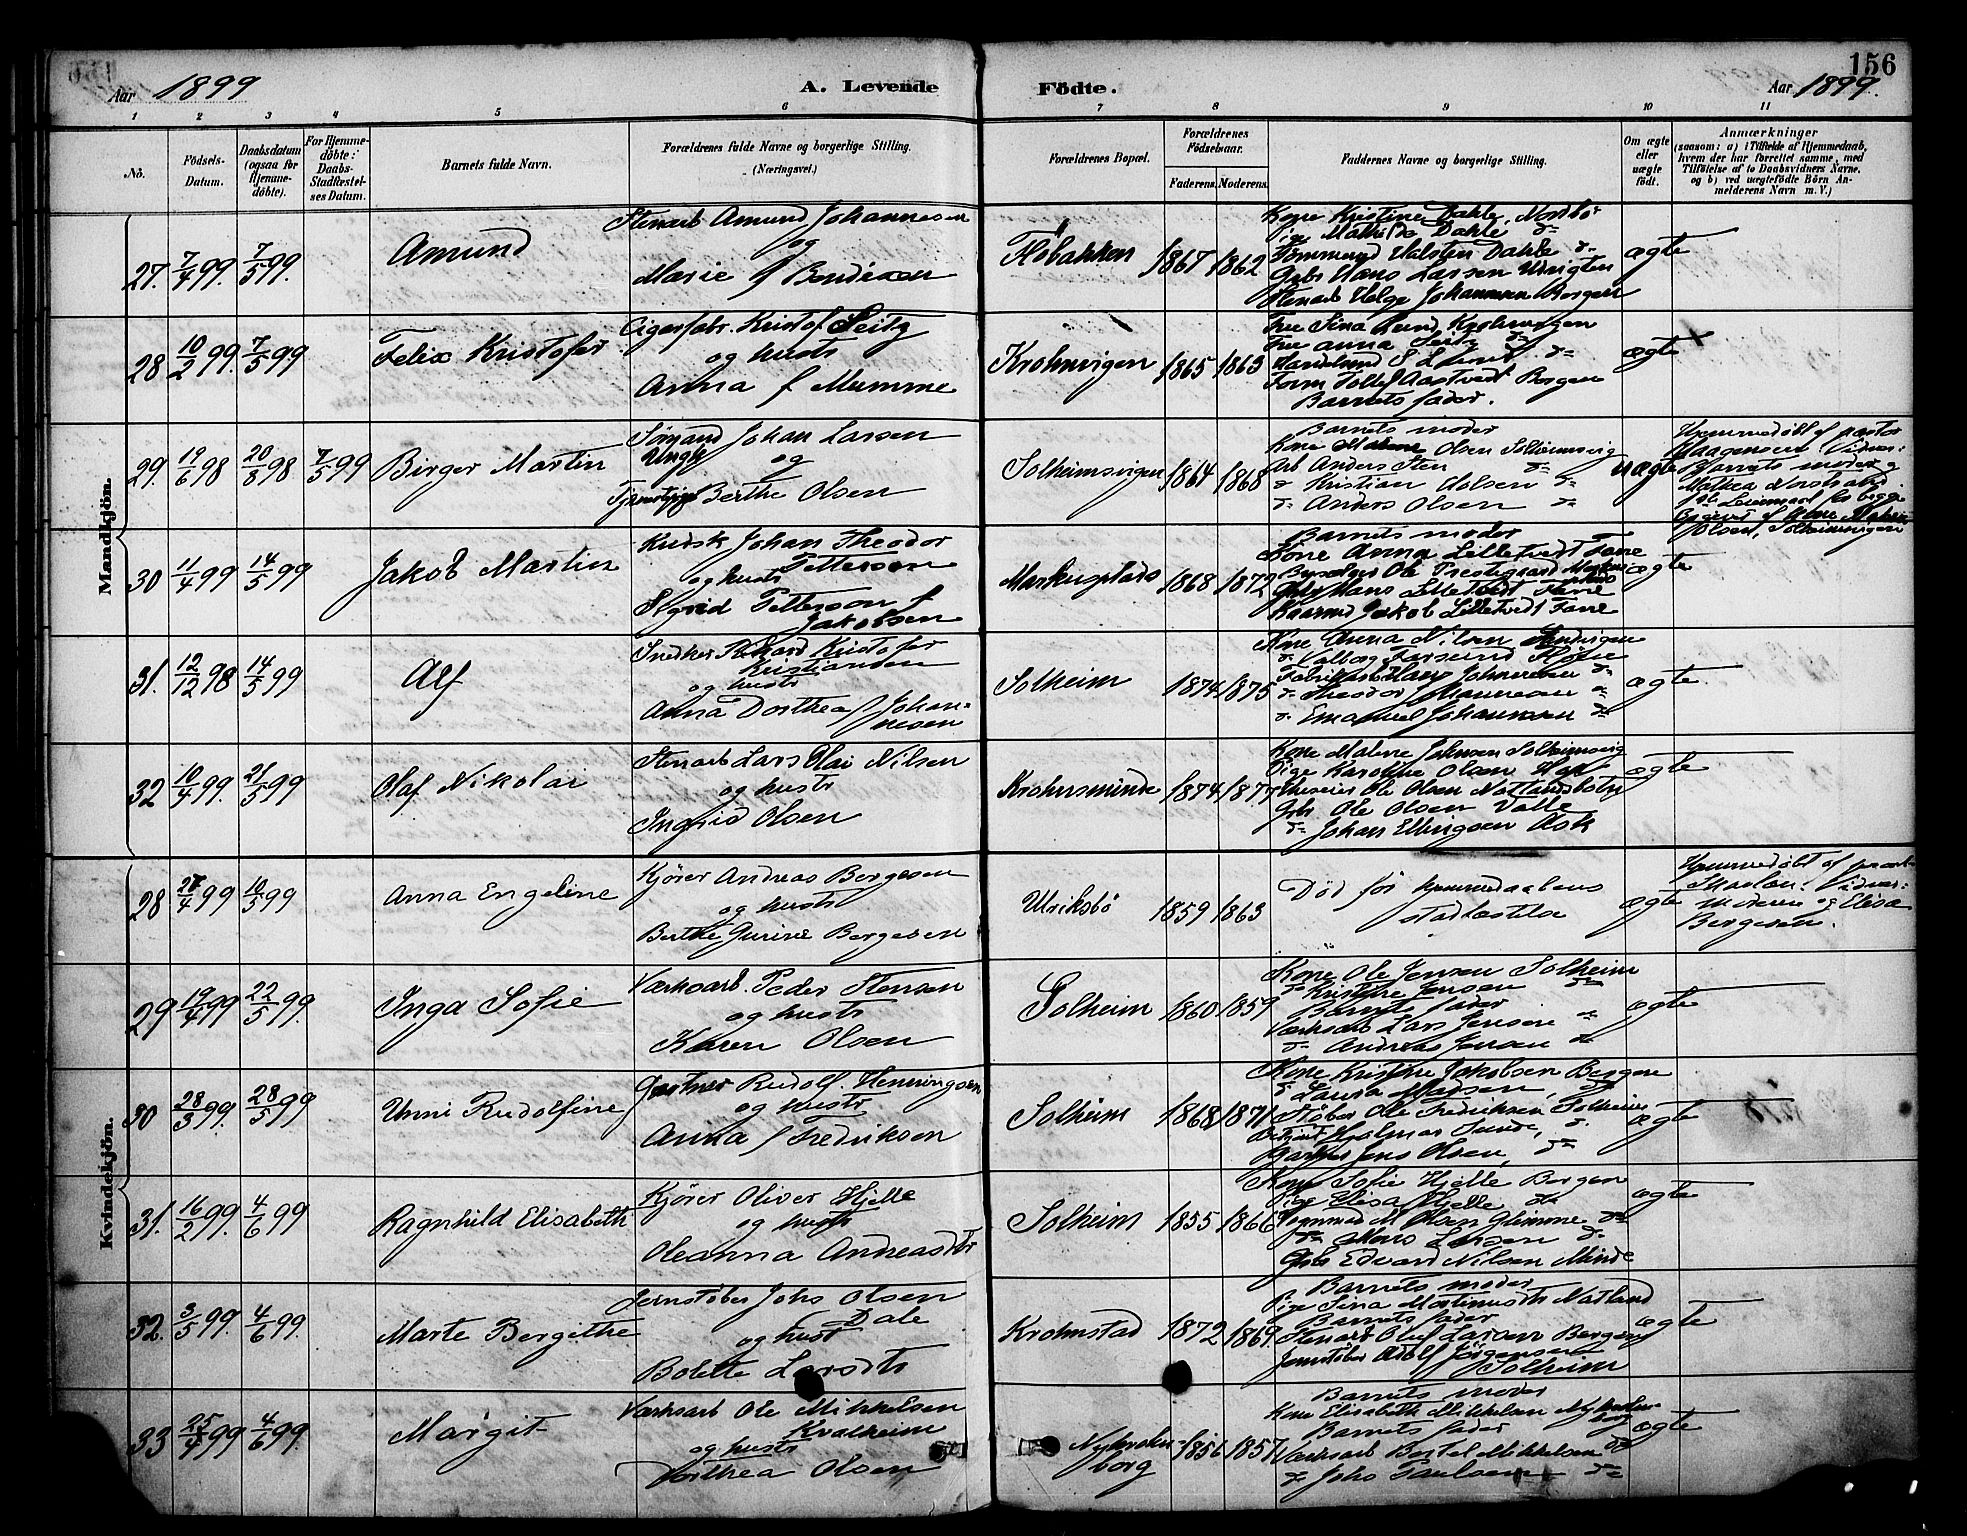 156
Aar 1899 A. Levende Födte. Aar 1899.
1 2 3 4 5 6 7 8 9 10 11
No. Födsels-Datum. Daabsdatum (ogsaa for Hjemmedöbte). For Hjemmedöbte: Daabs-Stadfæstelses Datum. Barnets fulde Navn. Forældrenes fulde Navne og borgerlige Stilling. (Næringsvei.) Forældrenes Bopæl. Forældrenes Födselsaar. Faderens. Moderens. Faddernes Navne og borgerlige Stilling. Om ægte eller uægte födt. Anmærkninger (saasom: a) i Tilfælde af Hjemmedaab, hvem der har forrettet samme, med Tilföielse af to Daabsvidners Navne, og b) ved uægtefödte Börn Anmelderens Navn m. V.)
Mandkjön.
27. 7/4 99. 7/5 99. Amund
Stenarb Amund Johannesen
og
Marie f Bendixen
Fløbakken 1867 1862
Kone Kristine Dahle, Nordbø
Pige Mathilde Dahle do
Tømmermd Halsten Dahle do
Gbr Hans Larsen Ulrigten
Stenarb Helge Johannesen Bergen
ægte
28 10/2 99. 7/5 99 Felix Kristofer
Cigarfabr. Kristof Seitz
og hustr
Anna f Mumme
Krohnvigen 1865 1863
Fru Sina Lund Krohnvigen
Fru Anna Seitz do
Handelsmd S Lund do
Form Tollef Aastvedt Bergen
Barnets fader.
ægte
29. 19/6 98 20/8 98 7/5 99 Birger Martin
Sømand Johan Larsen
Ungk og
Tjenestpige Berthe Olsen
Solheimsvigen 1864 1868
Barnets moder
Kone Malene Olsen Solheimsvig
Arb Anders Sten do
do Kristian Olsen do
do Anders Olsen do
uægte
Hjemmedøbt af pastor
Haagensen Vidner:
Barnets moder og
Mathea
Olsen, Solheimsvigen
30 11/4 99 14/5 99 Jakob Martin
Kudsk Johan Theodor
Pettersen
og hustr
Sigrid Petterson f
Jakobsen
Markusplads 1868 1872
Barnets moder
Kone Anna Lilletvedt Fane
Ole Prestegaard
Hans Lilletvedt Fane
Jakob Lilletvedt Fane
ægte
31. 12/12 98 14/5 99 Alf
Snedker Rikard Kristofer
Kristiansen
og hustr
Anna Dorthea f Johan-
nesen
Solheim 1874 1875
Kone Anna Nilsen
do Valborg
Fabrikarb Hans Johannesen do
do Theodor Johannesen do
do Emanuel Johannesen do
ægte
32 10/4 99. 21/5 99 Olaf Nikolai
Stenarb Lars Olai Nilsen
og hustr
Ingrid Olsen
Krohnsminde 1874 1877
Kone Malene Johnsen Solheimsvig
Pige Karoline Olsen
Ole Olsen Natlandsbotn
Gbr Ole Olsen Valle
do Johan Ellingsen Ask
ægte
Kvindekjön.
28 27/4 99 10/5 99 Anna Engeline
Kjører Andreas Børgesen
og hustr
Berthe Gurine Børgesen
Ulriksbø 1859 1863
Død før hjemmedaabens
stadfæstelse
ægte
Hjemmedøbt af
Vidner:
moderen og Elisa
Børgesen.
29 19/4 99 22/5 99. Inga Sofie
Værksarb. Peder Stensen
og hustr
Karen Olsen
Solheim 1860 1859
Kone Ole Jensen Solheim
do Kristine Jensen do
Barnets fader
Værksarb Lars Jensen do
do Andreas Jensen do
ægte
30 28/3 99. 28/5 99 Unni Rudolfine
Gartner Rudolf Henningsen
og hustr
Anna f Fredriksen
Solheim 1868 1871
Kone Kristine Jakobsen Bergen
do Laura Madsen, do
Støber Ole Fredriksen Solheim
Hjalmar Sunde, do
Jens Olsen, do
ægte
31. 16/2 99. 4/6 99 Ragnhild Elisabeth
Kjører Oliver Hjelle
og hustr
Oleanna Andreasdtr
Solheim 1855 1866
Kone Sofie Hjelle Bergen
Pige Elisa Hjelle do
Vognmd M Olsen Glimme do
do Mons Larsen do
Gbr Edvard Nilsen Minde
ægte
32. 3/5 99. 4/6 99. Marte Bergithe
Jernstøber Johs Olsen
Dale
og hustr
Bolette Larsdtr
Krohnstad 1872 1869.
Barnets moder
Pige Sina Mortinusdtr Natland
Barnets fader
Stenarb Oluf Larsen Bergen
Jernstøber Adolf Jørgensen
Solheim
ægte
33 25/4 99 4/6 99. Margit
Værksarb Ole Mikkelsen
Kvalheim
og hustr
Dorthea Olsen
Nykrohn-
borg 1856 1857
Barnets moder
Kone Elisabeth Mikkelsen Nykrohn-
borg
Barnets fader
Værksarb Bertel Mikkelsen do
do Johs Paulsen do
ægte